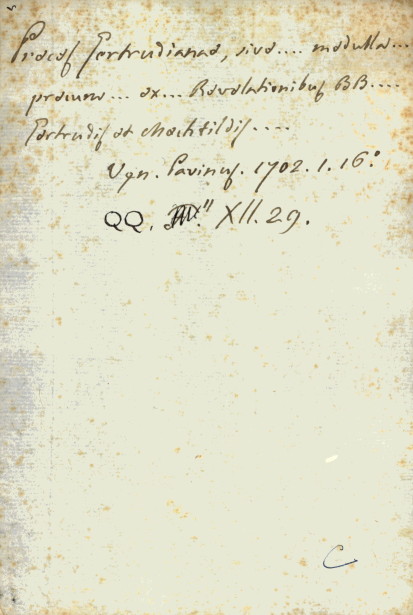 Preces Gertrudianae, sive.... medulla...
precum... ex... Revelationibus BB....
Gertrudis et Mechtildis....
Ugn. Pavinus. 1702. 1. 16°
QQ. XII. 29.
C